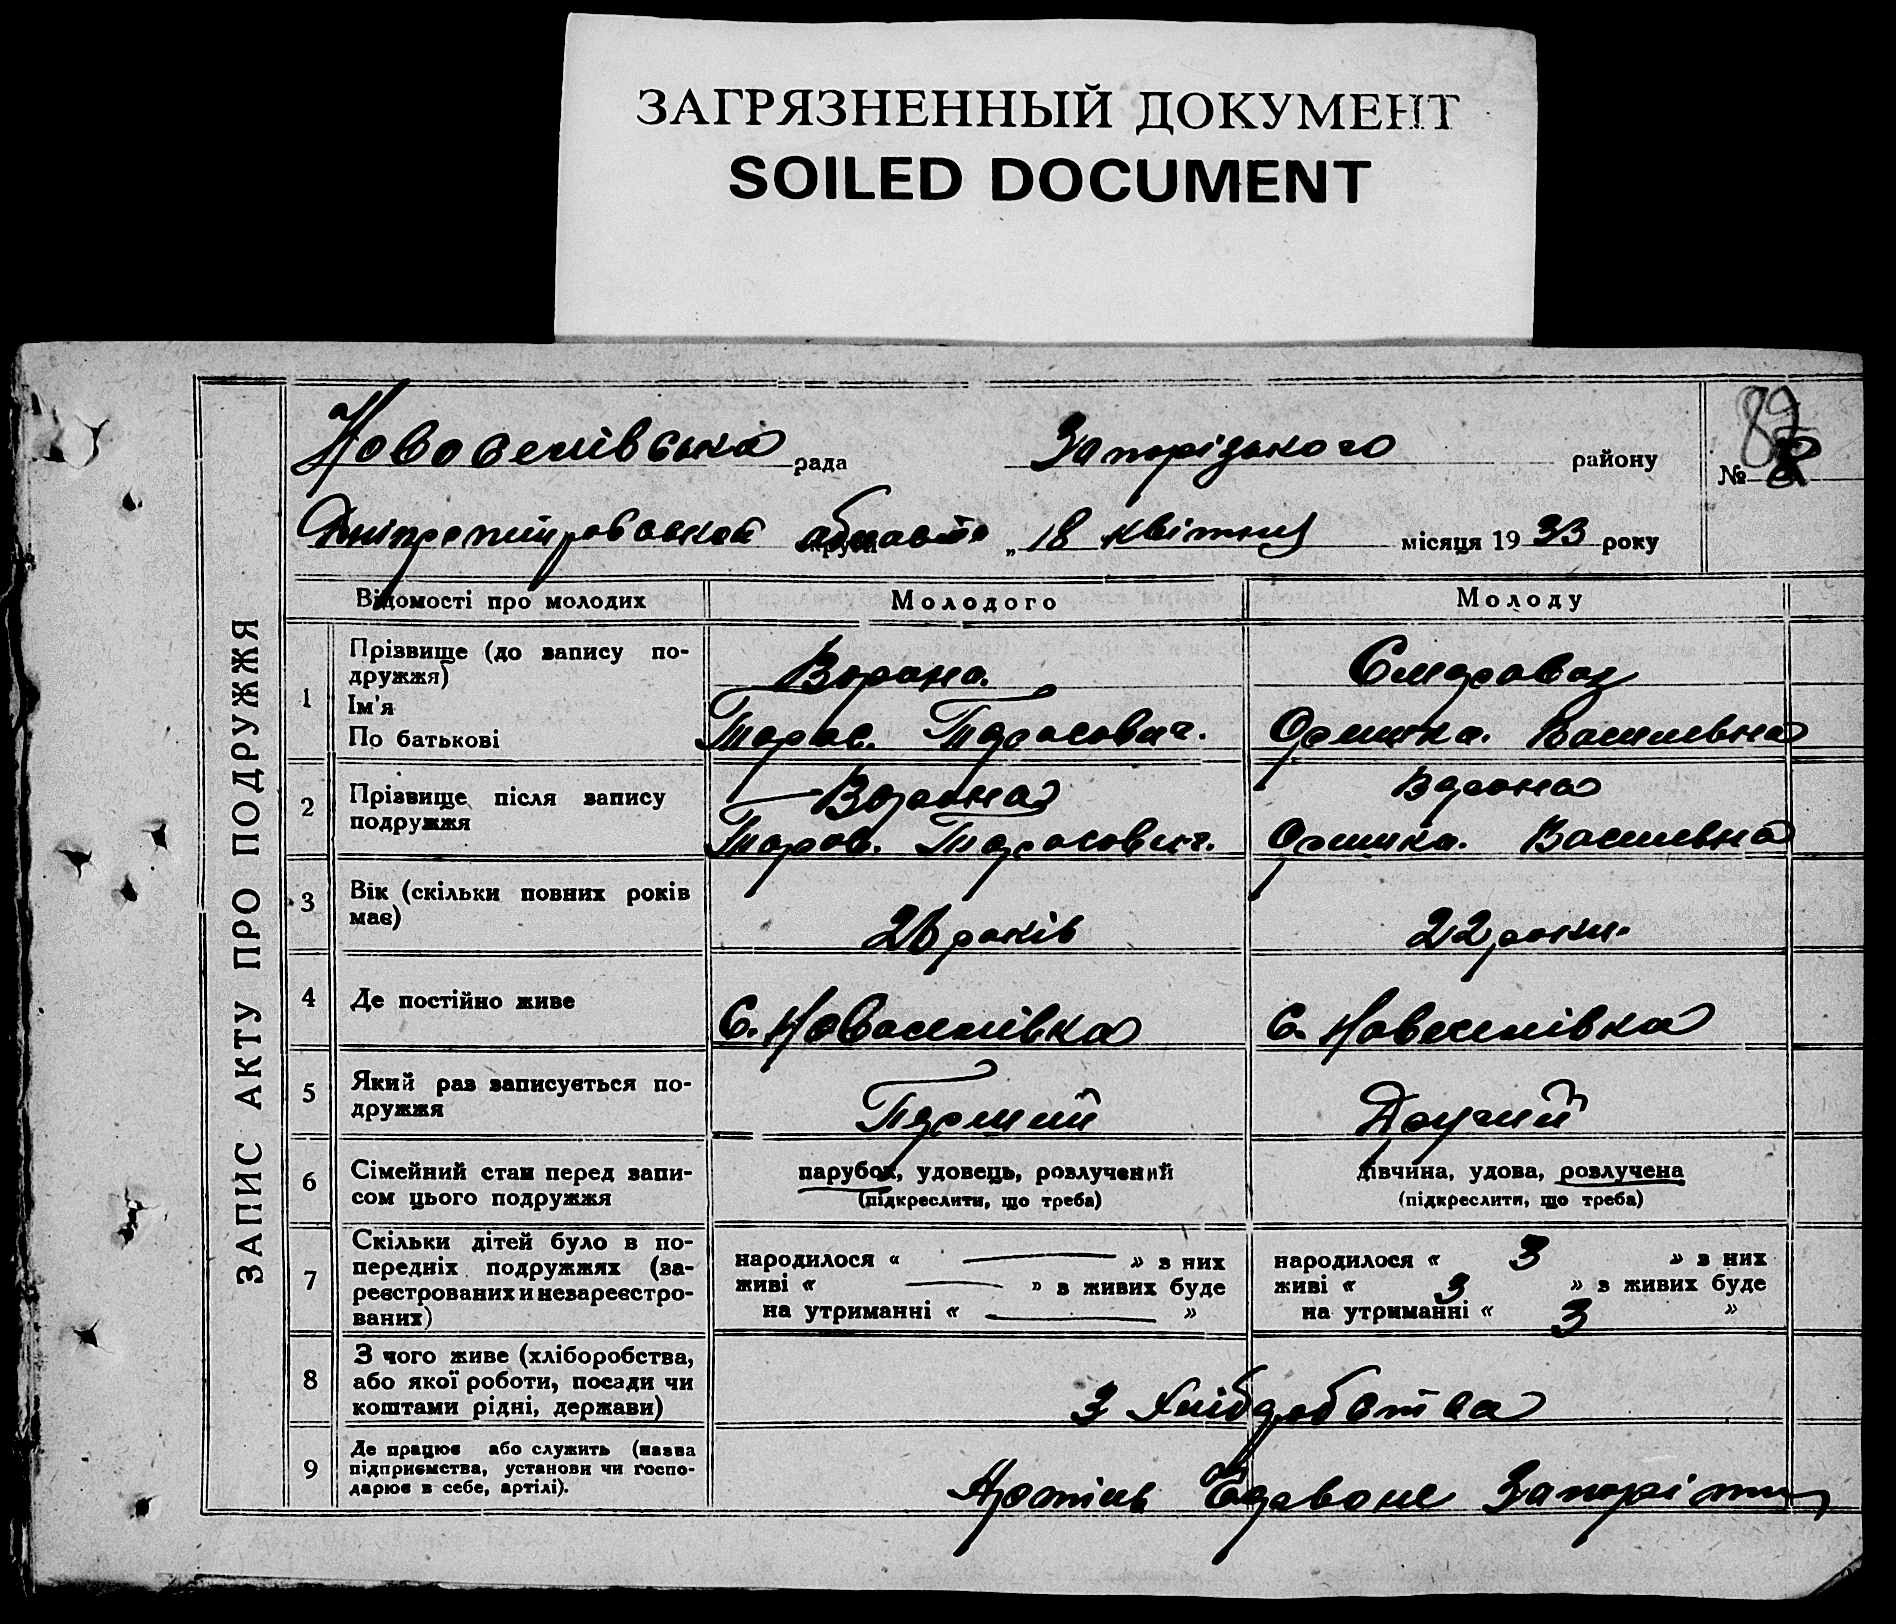 ЗАГРЯЗНЕННЫЙ ДОКУМЕНТ
SOILED DOCUMENT
Новоселівська рада Запорізького району № 87
Дніпропетровської області „ 18 квітня місяця 1933 року
ЗАПИС АКТУ ПРО ПОДРУЖЖЯ
Відомості про молодих Молодого Молоду
1 Прізвище (до запису по-
дружжя)
Ворона.
Ім'я
По батькові
Тарас. Тарасович. Оришка. Василивна
2 Прізвище після запису
подружжя
Ворона Ворона
Тарас. Тарасович. Оришка. Василивна
3 Вік (скільки повних років
має)
26 років 22 роки.
4 Де постійно живе
С. Новоселівка С. Новоселівка
5 Який раз записується по-
дружжя
Перший Другий
6 Сімейний стан перед запи-
сом цього подружжя
парубок, удовець, розлучений
(підкреслити, що треба)
дівчина, удова, розлучена
(підкреслити, що треба)
7 Скільки дітей було в по-
передніх подружжях (за-
реєстрованих и незареєстро-
ваних)
народилося « — » з них
живі « — » в живих буде
на утриманні « — »
народилося « 3 » з них
живі « 3 » в живих буде
на утриманні « 3 »
8 З чого живе (хліборобства,
або якої роботи, посади чи
коштами рідні, держави)
З Хліборобства
9 Де працює або служить (назва
підприємства, установи чи госпо-
дарює в себе, артілі).
Артіль Червоне Запоріжжя